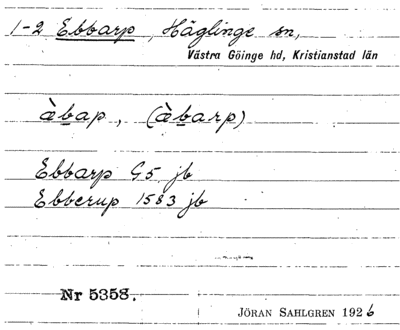 1-2 Ebbarp, Häglinge sn,
Västra Göinge hd, Kristianstad län
àbap, (àbarp)
Ebbarp G5 jb
Ebberup 1583 jb
Nr 5358.
JÖRAN SAHLGREN 1926